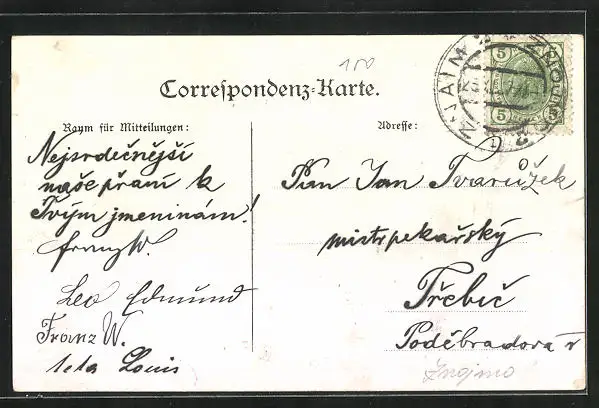 100
Correspondenz-Karte.
Raum für Mitteilungen:
Nejsrdečnější
naše přání k
Tvým jmeninám!
Franz W.
Leo Edmund
Franz W.
teta Louis
Adresse:
ZNAIM ZNOJMO
5 5
5 5
Pan Jan Tvarůžek
mistr pekařský
Třebíč
Poděbradova
Znojmo